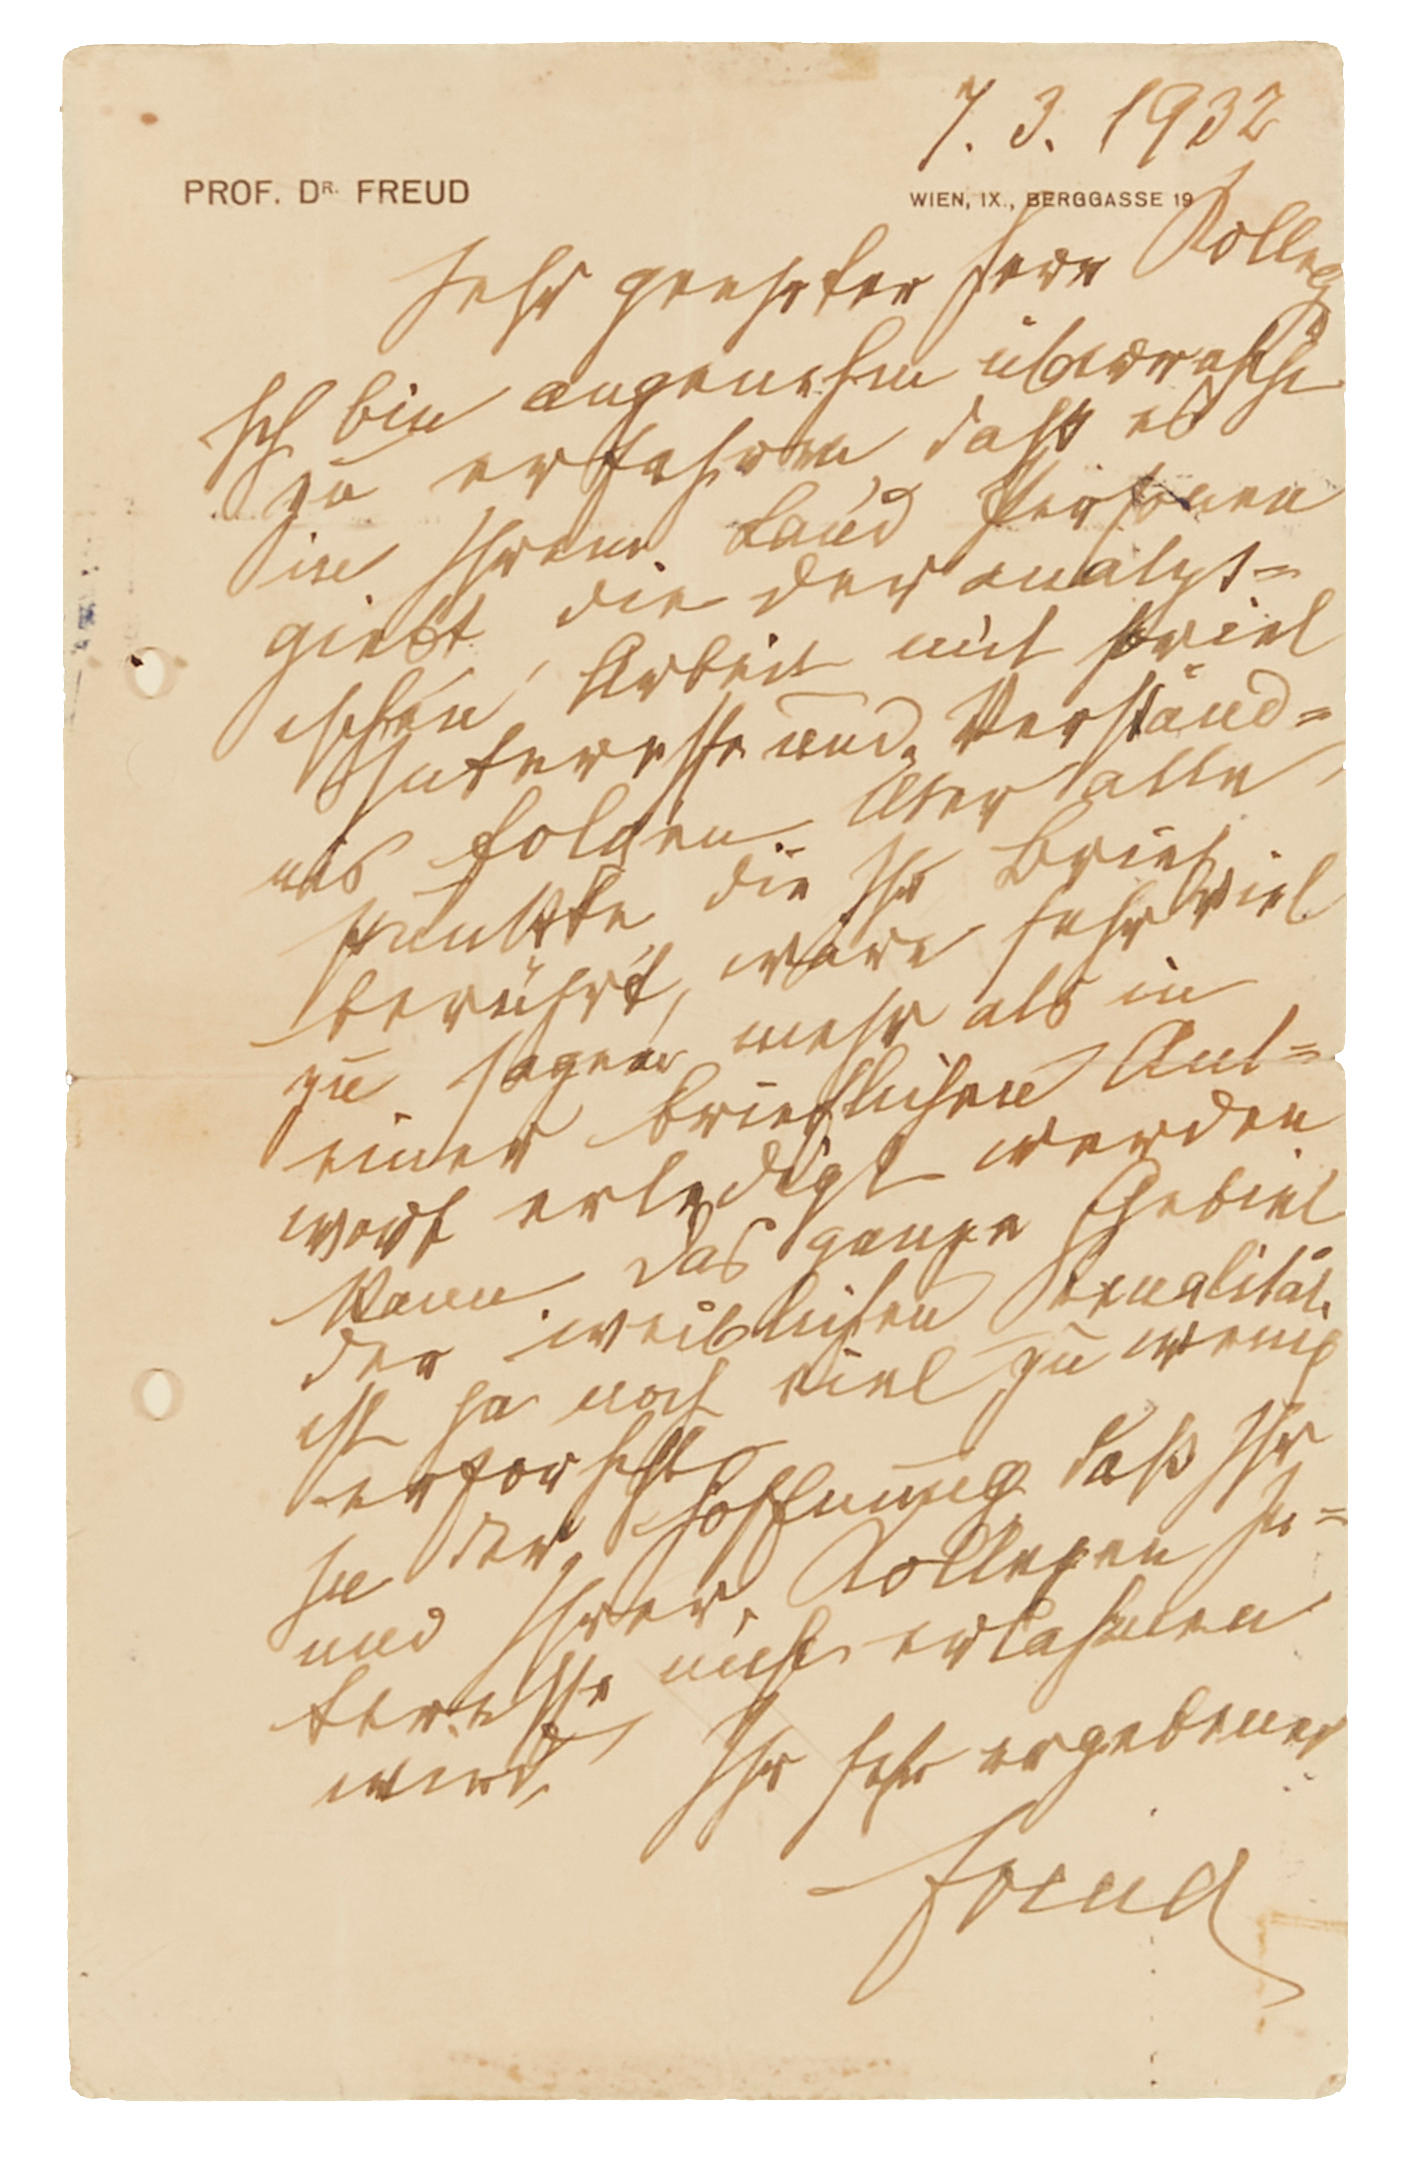 7. 3. 1932
PROF. DR. FREUD
WIEN, IX., BERGGASSE 19
Sehr geehrter Herr Kollege
Ich bin angenehm überrascht
zu erfahren, daß es
in Ihrem Land Personen
giebt die der analyt=
ischen Arbeit mit soviel
Interesse und Verständ=
nis folgen. Über alle
Punkte die Ihr Brief
berührt, wäre sehr viel
zu sagen mehr als in
einer brieflichen Ant=
wort erledigt werden
kann. Das ganze Gebiet
der weiblichen Sexualität
ist ja noch viel zu wenig
erforscht
In der Hoffnung daß Ihr
und Ihrer Kollegen In=
teresse nicht erlahmen
wird,
Ihr sehr ergebener
Freud